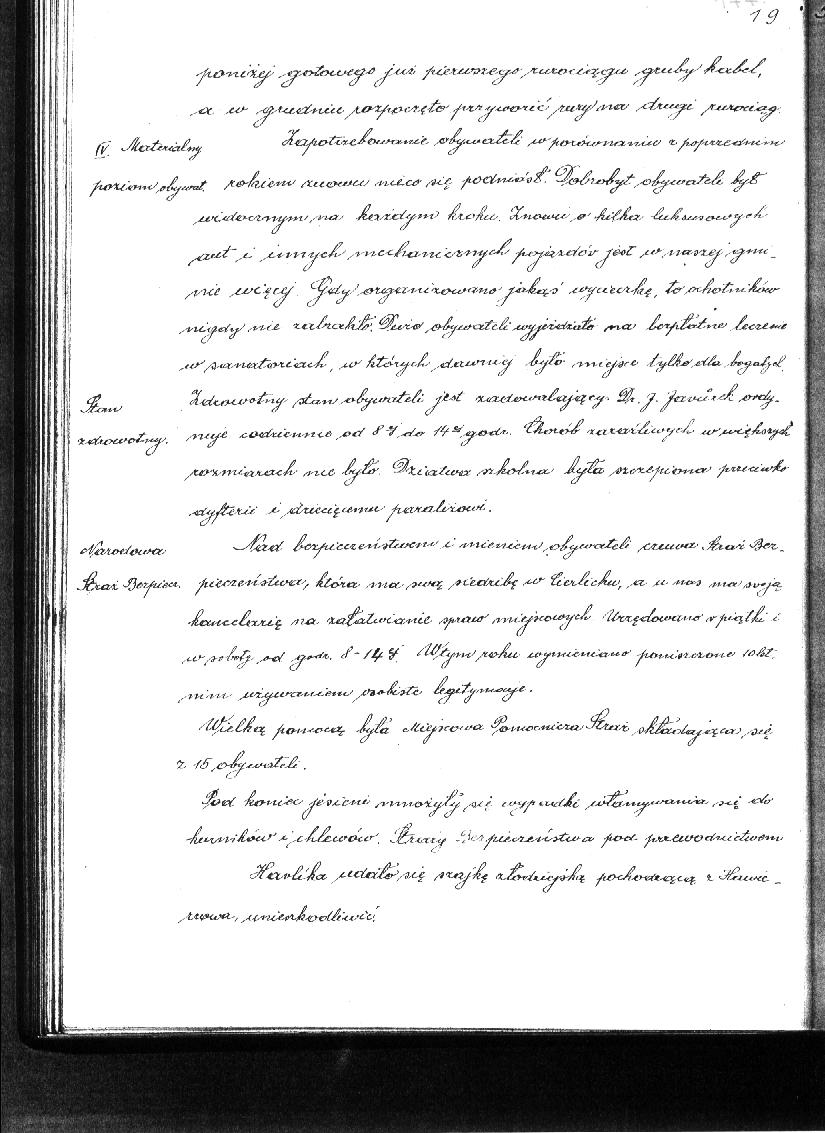 19
poniżej gotowego już pierwszego rurociągu gruby kabel,
a w grudniu rozpoczęto przyworić rury na drugi rurociąg.
IV. Materialny
poziom obywat.
Zapotrzebowanie obywateli w porównaniu z poprzednim
rokiem znowu nieco się podniósł. Dobrobyt obywateli był
widocznym na każdym kroku. Znowu o kilka luksusowych
aut i innych mechanicznych pojazdów jest w naszej gmi-
nie więcej. Gdy organizowano jakąś wycieczkę, to ochotników
nigdy nie zabrakło. Dużo obywateli wyjeżdżało na bezpłatne leczenie
w sanatoriach, w których dawniej było miejsce tylko dla bogatych.
Stan
zdrowotny.
Zdrowotny stan obywateli jest zadowalający. Dr. J. Javůrek ordy-
nuje codziennie od 8ej do 14ej godz. Chorób zaraźliwych w większych
rozmiarach nie było. Dziatwa szkolna była szczepiona przeciwko
dyfterii i dziecięcemu paraliżowi.
Narodowa
Straż Bezpiecz.
Nad bezpieczeństwem i mieniem obywateli czuwa Straż Bez-
pieczeństwa, która ma swą siedzibę w Cierlicku, a u nas ma swoją
kancelarię na załatwianie spraw miejscowych. Urzędowano w piątki i
w soboty od godz. 8-14ej. W tym roku wymieniano poniszczone 10 let.
nim używaniem osobiste legitymacje.
Wielką pomocą była Miejscowa Pomocnicza Straż składająca się
z 15 obywateli.
Pod koniec jesieni mnożyły się wypadki włamywania się do
kurników i chlewów. Straży Bezpieczeństwa pod przewodnictwem
Havlíka udało się szajkę złodziejską pochodzącą z Hawie-
rzowa, unieszkodliwić.